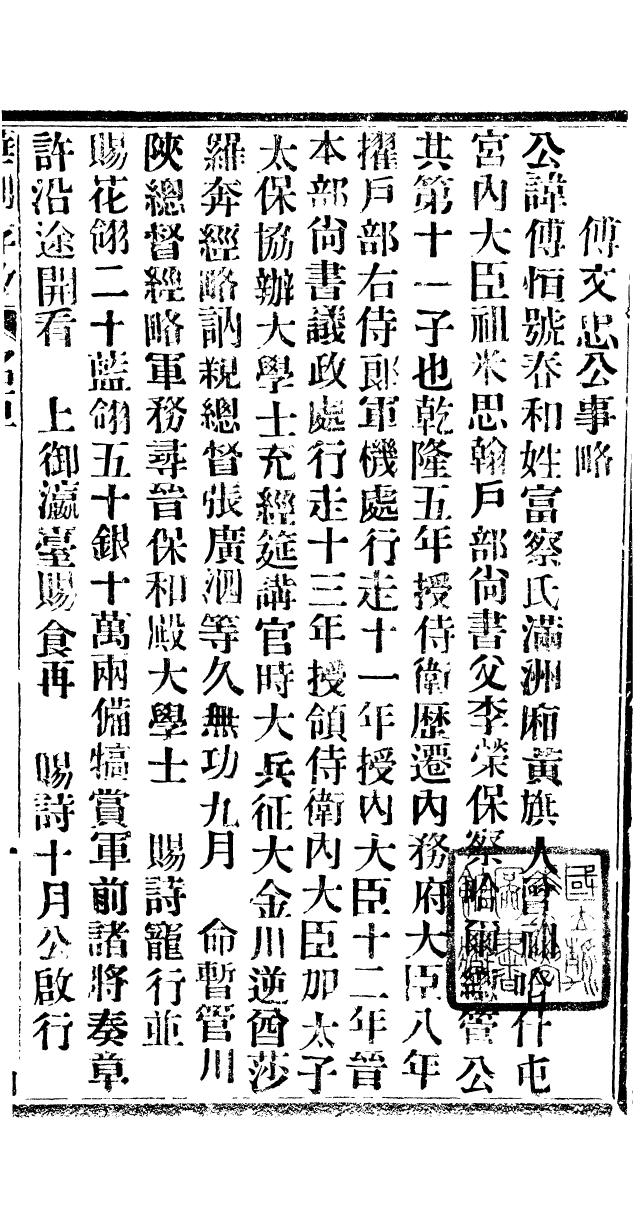 傅文忠公事略
公諱傅恒號春和姓富察氏滿洲廂黃旗人曾祖哈什屯
宮內大臣祖米思翰戶部尙書父李榮保察哈爾總管公
其第十一子也乾隆五年授侍衛歷遷內務府大臣八年
擢戶部右侍郞軍機處行走十一年授內大臣十二年晉
本部尙書議政處行走十三年授領侍衛內大臣加太子
太保協辦大學士充經筵講官時大兵征大金川逆酋莎
羅奔經略訥親總督張廣泗等久無功九月 命暫管川
陝總督經略軍務尋晉保和殿大學士 賜詩寵行並
賜花翎二十藍翎五十銀十萬兩備犒賞軍前諸將奏章
許沿途開看 上御瀛臺賜食再 賜詩十月公啟行